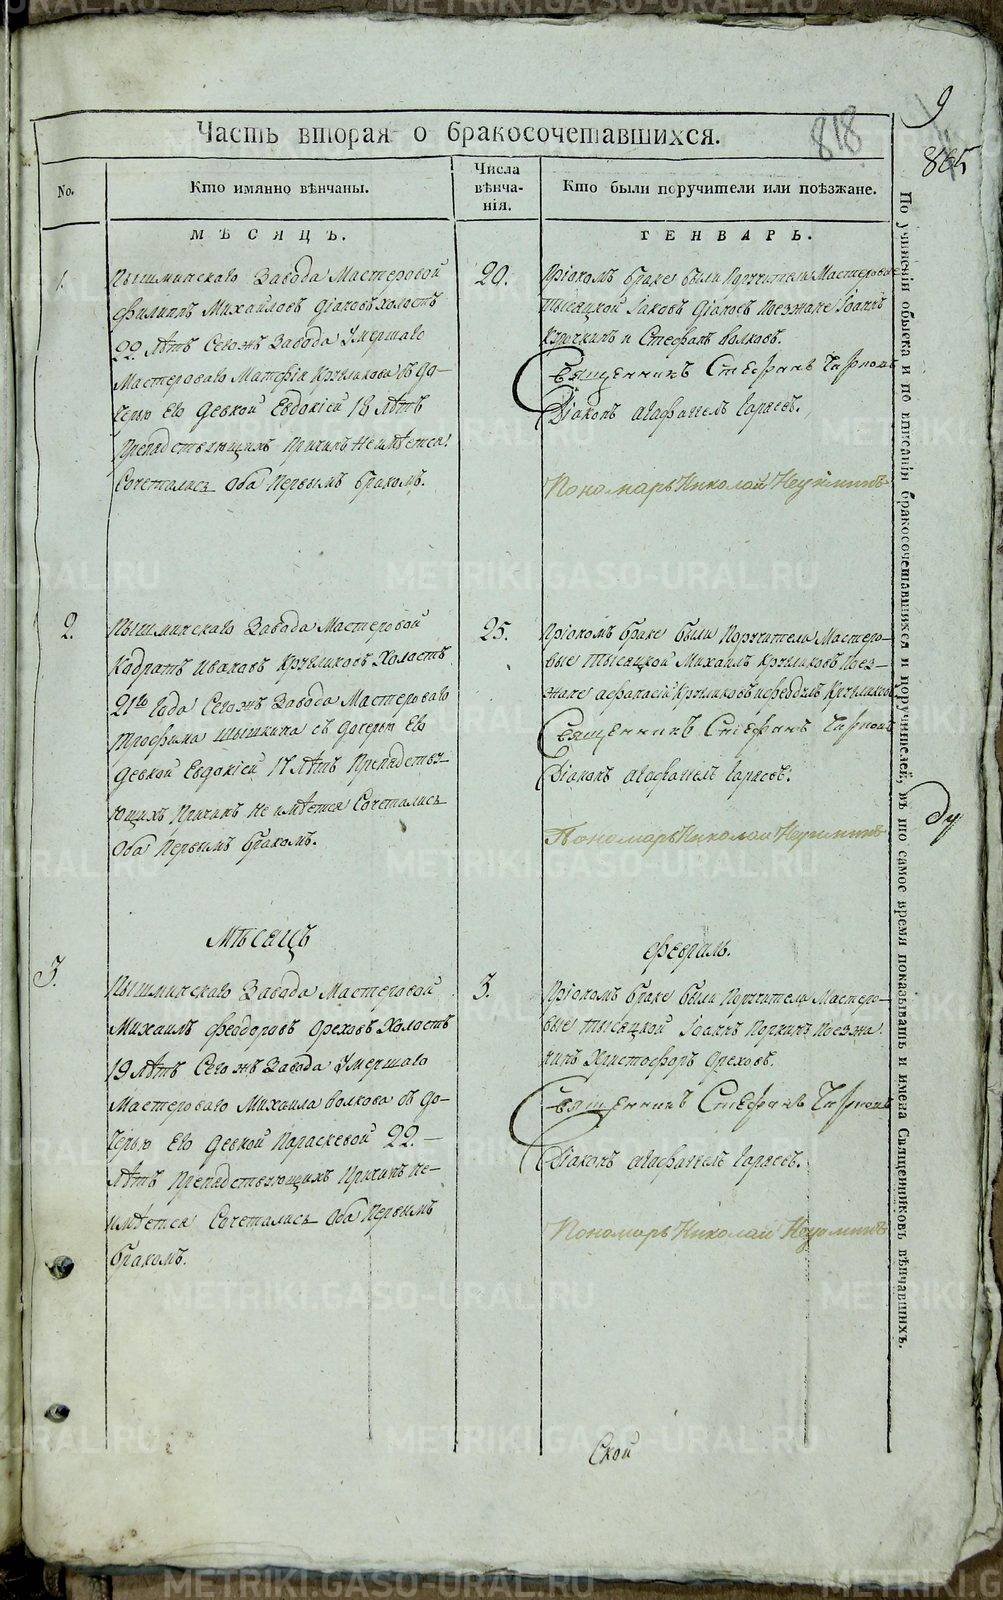 9
818
865
Часть вторая о бракосочетавшихся.
No.
Кто имянно вѣнчаны.
Числа вѣнча-нія.
Кто были поручители или поѣзжане.
МѢСЯЦЪ.
ГЕНВАРЬ.
1.
Пышминскаго Завода Мастеровой
Филиппъ Михайловъ Дїаковъ холостъ
22 лѣтъ Сегожъ Завода Умершаго
Мастероваго Матфїя Кручинкова съ до-
черью Ево девкой Евдокїей 18 лѣтъ
Препядствующихъ Причинъ Неимѣется
Сочетались Оба Первымъ бракомъ.
20.
При ономъ браке были Поручители Мастеровые
тысяцкой Іаковъ Дїаковъ Поезжане Іоаннъ
и Стефанъ Волковъ.
Священникъ Стефанъ
Дїаконъ
Пономарь Николай Неуйминъ
2.
Пышминскаго Завода Мастеровой
Кодратъ Ивановъ Кручинковъ Холостъ
21го Года Сегожъ Завода Мастероваго
Трофима Шышкина съ дочерью Ево
девкой Евдокїей 17 лѣтъ Препядству-
ющихъ Причинъ Не имѣется Сочетались
Оба Первымъ бракомъ.
25.
При ономъ браке были Поручители Мастеро-
вые тысяцкой Михаилъ Кручинковъ Поез-
жане Афанасїй Кручинковъ Ифеодоръ
Священникъ Стефанъ
Дїаконъ
Пономарь Николай Неуйминъ
МѢСЯЦЪ
Февраль.
3.
Пышминскаго Завода Мастеровой
Михаилъ Феодоровъ Ореховъ Холостъ
19 лѣтъ Сегожъ Завода Умершаго
Мастероваго Михаила Волкова съ до-
черью Ево девкой Параскевой 22.
лѣтъ Препядствующихъ Причинъ Не-
имѣется Сочетались Оба Первымъ
бракомъ.
3.
При ономъ браке были Поручители Мастеро-
вые тысяцкой Іоаннъ Поезжа
нинъ Христофоръ Ореховъ.
Священникъ Стефанъ
Дїаконъ
Пономарь Николай Неуйминъ
Ской
По учиненіи обыска и по вписаніи бракосочетавшихся и поручителей, въ то самое время показывать и имена Священниковъ вѣнчавшихъ.
METRIKI.GASO-URAL.RU